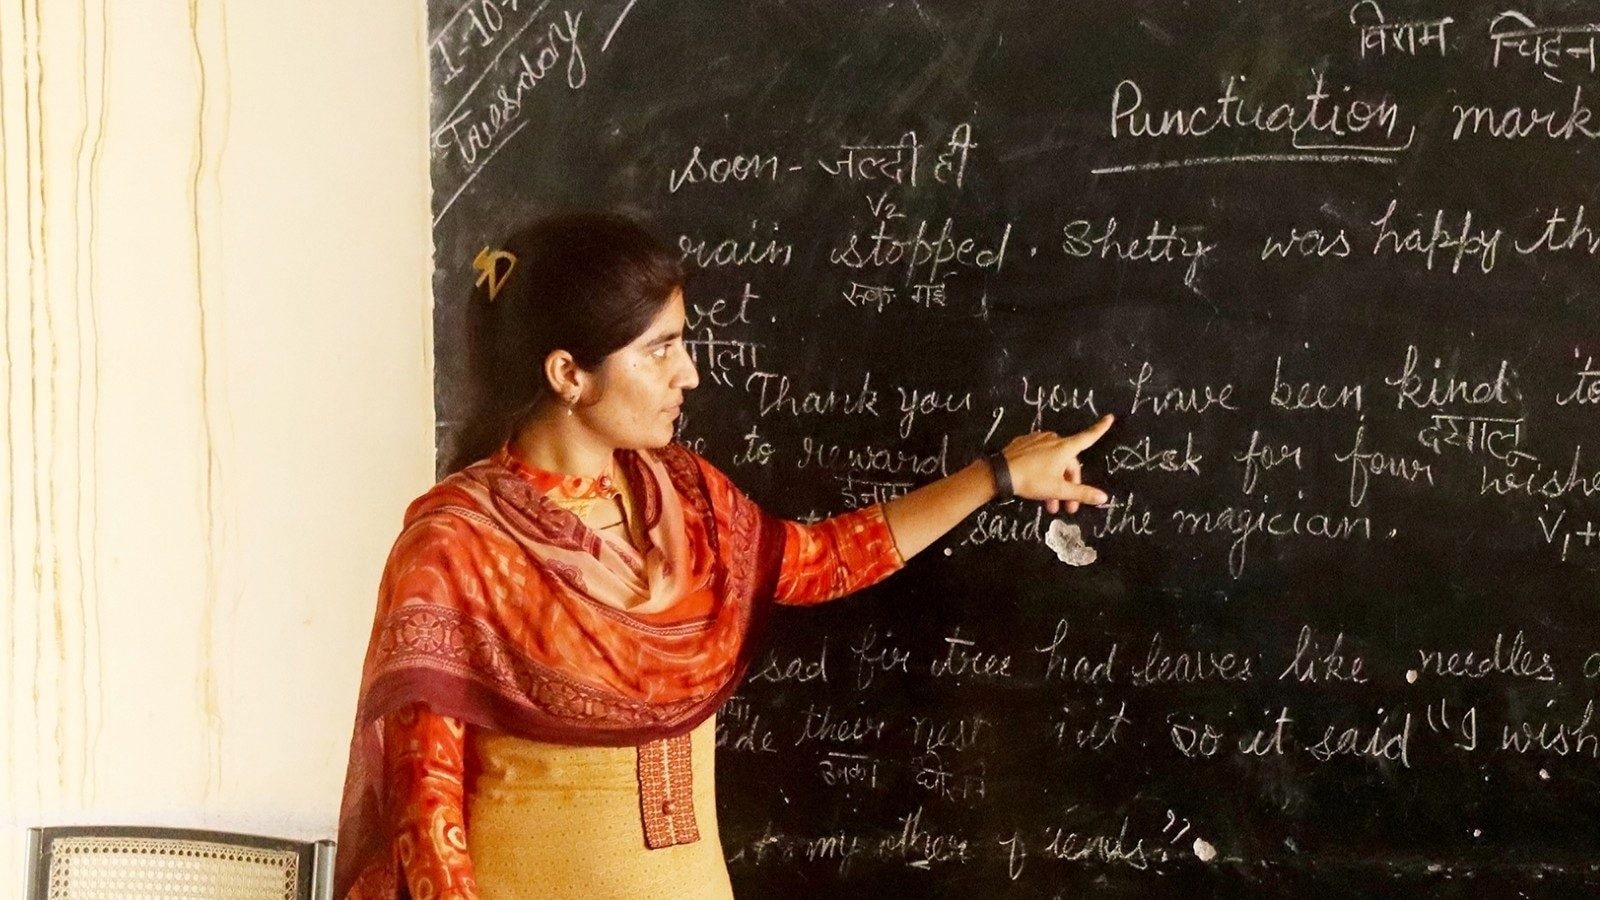 Tuesday
विराम चिह्न
Punctuation mark
soon - जल्दी ही
V2
rain stopped. Shetty was happy
रूक गई
wet.
गीला
"Thank you, you have been kind to
दयालु
to reward Ask for four wishe
ईनाम
said the magician. V1+
sad fir tree had leaves like needles
their nest it. So it said "I wish
उनका
to my other friends."